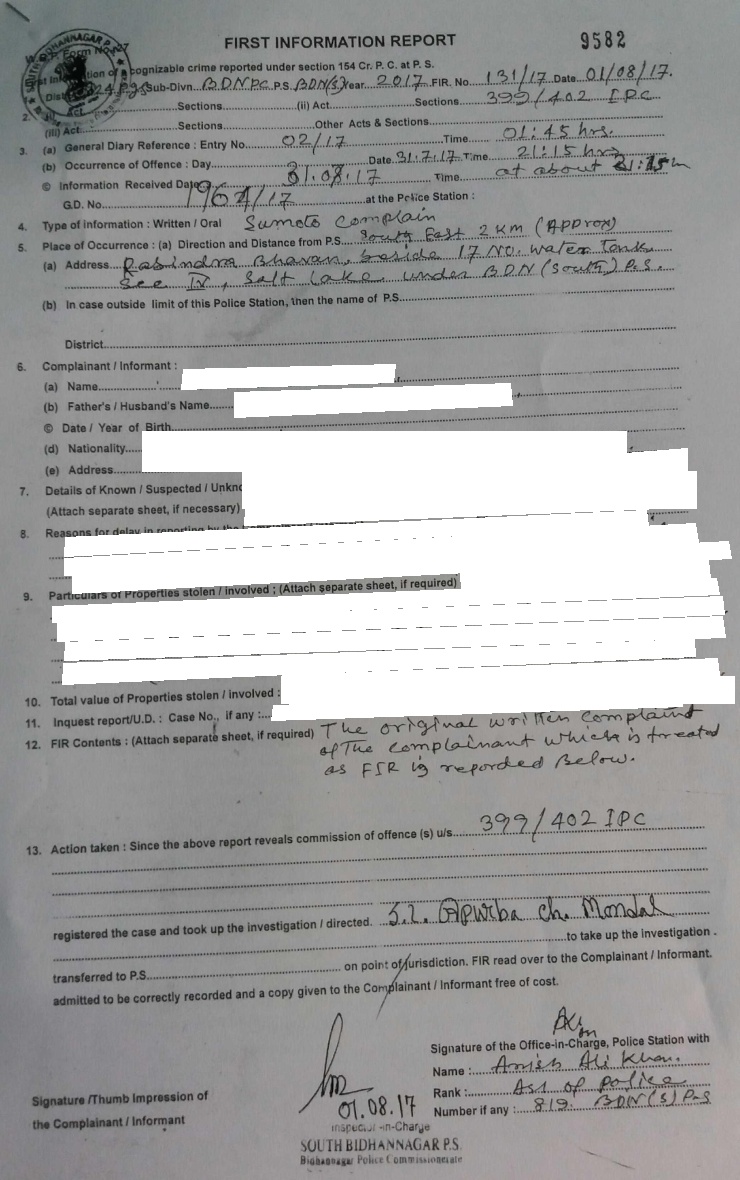 FIRST INFORMATION REPORT
9582
SOUTH BIDHANNAGAR P.S.
cognizable crime reported under section 154 Cr. P. C. at P. S.
24 Pgs Sub-Divn. BDNPC P.S. BDN(S) Year 2017 FIR. No 131/17 Date 01/08/17.
2. Act Sections (ii) Act Sections 399/402 IPC
(iii) Act Sections Other Acts & Sections
3. (a) General Diary Reference : Entry No. 02/17 Time 01:45 hrs.
(b) Occurrence of Offence : Day Date 31.7.17 Time 21:15 hrs
© Information Received Date 31.08.17 Time at about
G.D. No. 1964/17 at the Police Station :
4. Type of information : Written / Oral Sumoto Complain
5. Place of Occurrence : (a) Direction and Distance from P.S. South East 2 KM (Approx)
(a) Address Rabindra Bhavan, beside 17 No. Water Tank
Sec IV, Salt Lake under BDN (South) P.S.
(b) In case outside limit of this Police Station, then the name of P.S.
District
6. Complainant / Informant :
(a) Name
(b) Father's / Husband's Name
© Date / Year of Birth
(d) Nationality
(e) Address
7. Details of Known / Suspected /
(Attach separate sheet, if necessary)
8. Reasons for delay in reporting by the
9. Particulars of Properties stolen / involved ; (Attach separate sheet, if required)
10. Total value of Properties stolen / involved :
11. Inquest report/U.D. : Case No., if any :
12. FIR Contents : (Attach separate sheet, if required) The original written Complaint
of The Complainant which is treated
as FIR is reporded Below.
13. Action taken : Since the above report reveals commission of offence (s) u/s. 399/402 IPC
registered the case and took up the investigation / directed. S.I. Apurba ch. Mondal
to take up the investigation .
transferred to P.S. on point of jurisdiction. FIR read over to the Complainant / Informant.
admitted to be correctly recorded and a copy given to the Complainant / Informant free of cost.
Signature of the Office-in-Charge, Police Station with
Name : Anish Ali Khan.
Rank : ASI of police
Number if any : 819. BDN(S) PS
Signature /Thumb Impression of
the Complainant / Informant
01.08.17
Inspector-in-Charge
SOUTH BIDHANNAGAR P.S.
Bidhannagar Police Commissionerate